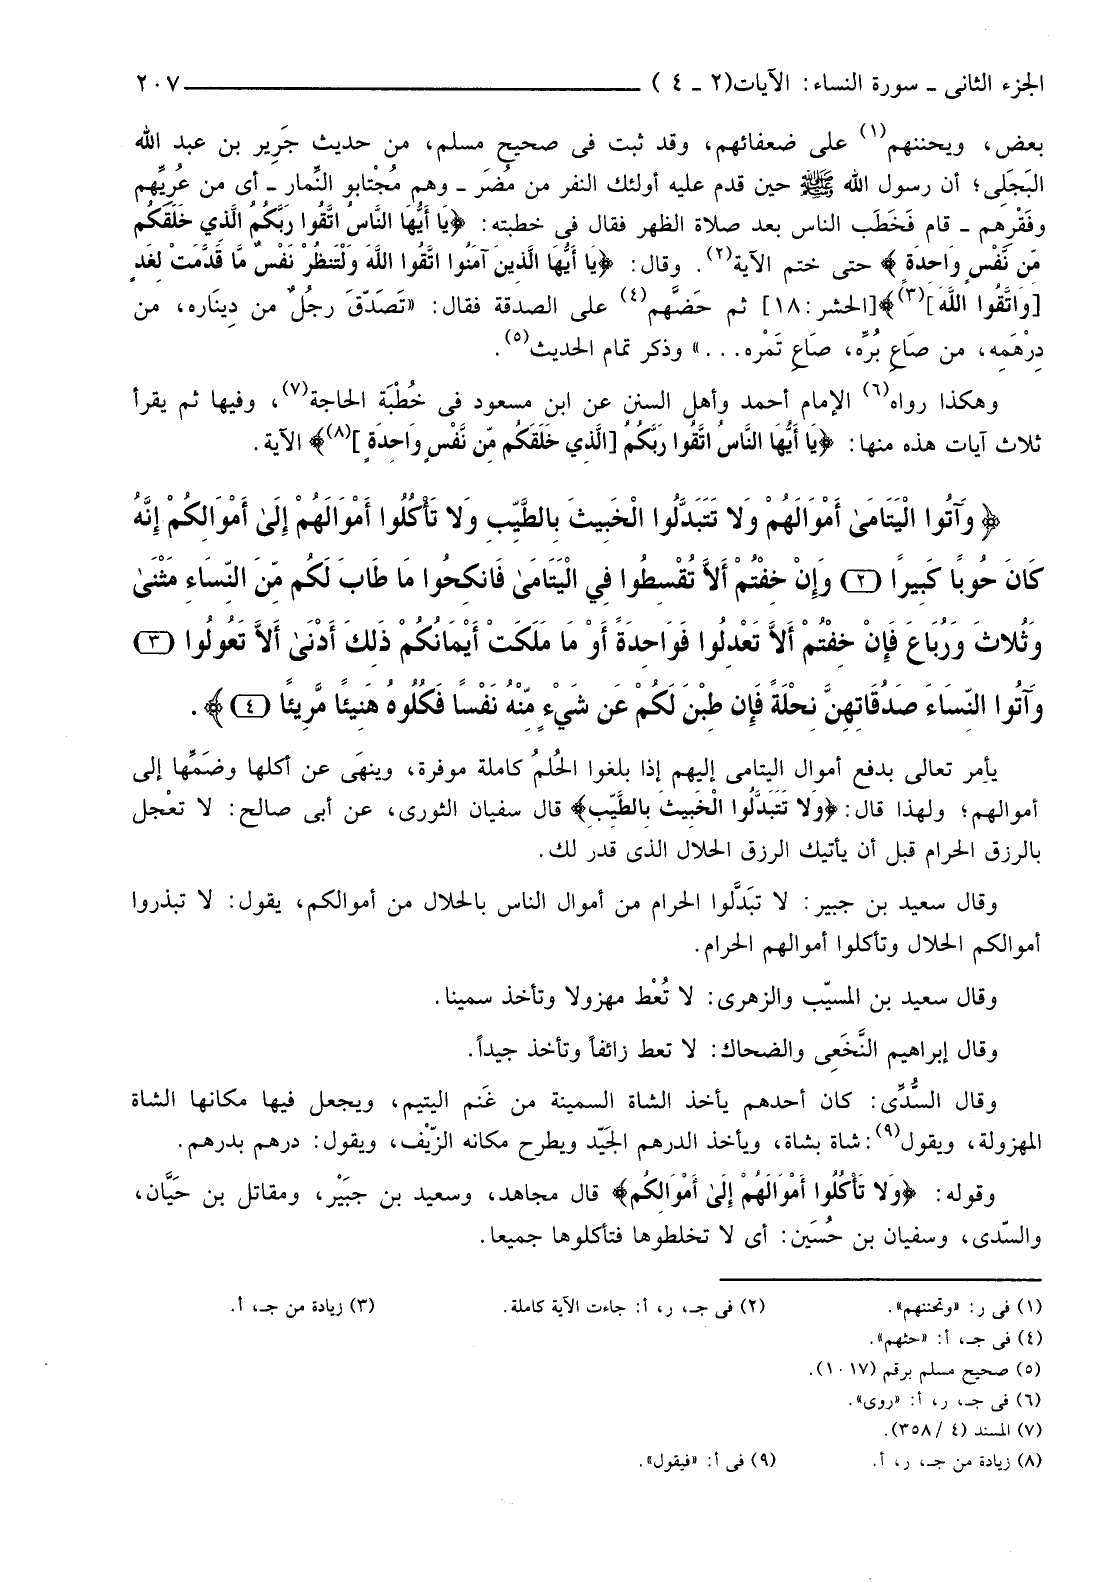 الجزء الثانى ـ سورة النساء: الآيات(٢ ـ ٤ ) ٢٠٧
بعض، ويحننهم(١) على ضعفائهم، وقد ثبت فى صحيح مسلم، من حديث جَرِير بن عبد الله
البَجَلى؛ أن رسول الله ﷺ حين قدم عليه أولئك النفر من مُضَر ـ وهم مُجْتابو النِّمار ـ أى من عُريِّهم
وفَقْرهم ـ قام فَخَطَب الناس بعد صلاة الظهر فقال فى خطبته: ﴿يَا أَيُّهَا النَّاسُ اتَّقُوا رَبَّكُمُ الَّذِي خَلَقَكُم
مِّن نَّفْسٍ وَاحِدَةٍ ﴾ حتى ختم الآية(٢). وقال: ﴿يَا أَيُّهَا الَّذِينَ آمَنُوا اتَّقُوا اللَّهَ وَلْتَنظُرْ نَفْسٌ مَّا قَدَّمَتْ لِغَدٍ
[وَاتَّقُوا اللَّهَ](٣)﴾[الحشر:١٨] ثم حَضَّهم(٤) على الصدقة فقال: «تَصَدَّقَ رجلٌ من دِينَاره، من
دِرْهَمِه، من صَاعِ بُرِّه، صَاعِ تَمْره...» وذكر تمام الحديث(٥).
وهكذا رواه(٦) الإمام أحمد وأهل السنن عن ابن مسعود فى خُطْبَة الحاجة(٧)، وفيها ثم يقرأ
ثلاث آيات هذه منها: ﴿يَا أَيُّهَا النَّاسُ اتَّقُوا رَبَّكُمُ [الَّذِي خَلَقَكُم مِّن نَّفْسٍ وَاحِدَةٍ ](٨)﴾ الآية.
﴿ وَآتُوا الْيَتَامَىٰ أَمْوَالَهُمْ وَلا تَتَبَدَّلُوا الْخَبِيثَ بِالطَّيِّبِ وَلا تَأْكُلُوا أَمْوَالَهُمْ إِلَىٰ أَمْوَالِكُمْ إِنَّهُ
كَانَ حُوبًا كَبِيرًا (٢) وَإِنْ خِفْتُمْ أَلاَّ تُقْسِطُوا فِي الْيَتَامَىٰ فَانكِحُوا مَا طَابَ لَكُم مِّنَ النِّسَاءِ مَثْنَىٰ
وَثُلاثَ وَرُبَاعَ فَإِنْ خِفْتُمْ أَلاَّ تَعْدِلُوا فَوَاحِدَةً أَوْ مَا مَلَكَتْ أَيْمَانُكُمْ ذَلِكَ أَدْنَىٰ أَلاَّ تَعُولُوا (٣)
وَآتُوا النِّسَاءَ صَدُقَاتِهِنَّ نِحْلَةً فَإِن طِبْنَ لَكُمْ عَن شَيْءٍ مِّنْهُ نَفْسًا فَكُلُوهُ هَنِيئًا مَّرِيئًا (٤) ﴾ .
يأمر تعالى بدفع أموال اليتامى إليهم إذا بلغوا الحُلمُ كاملة موفرة، وينهَى عن أكلها وضَمِّها إلى
أموالهم؛ ولهذا قال: ﴿وَلا تَتَبَدَّلُوا الْخَبِيثَ بِالطَّيِّبِ﴾ قال سفيان الثورى، عن أبى صالح: لا تعْجل
بالرزق الحرام قبل أن يأتيك الرزق الحلال الذى قدر لك.
وقال سعيد بن جبير: لا تبَدَّلوا الحرام من أموال الناس بالحلال من أموالكم، يقول: لا تبذروا
أموالكم الحلال وتأكلوا أموالهم الحرام.
وقال سعيد بن المسيّب والزهرى: لا تُعْط مهزولا وتأخذ سمينا.
وقال إبراهيم النَّخَعِى والضحاك: لا تعط زائفاً وتأخذ جيداً.
وقال السُّدِّى: كان أحدهم يأخذ الشاة السمينة من غَنم اليتيم، ويجعل فيها مكانها الشاة
المهزولة، ويقول(٩): شاة بشاة، ويأخذ الدرهم الجَيِّد ويطرح مكانه الزّيْف، ويقول: درهم بدرهم.
وقوله: ﴿وَلا تَأْكُلُوا أَمْوَالَهُمْ إِلَىٰ أَمْوَالِكُم﴾ قال مجاهد، وسعيد بن جبَيْر، ومقاتل بن حَيَّان،
والسّدى، وسفيان بن حُسَين: أى لا تخلطوها فتأكلوها جميعا.
(١) فى ر: «وتحننهم». (٢) فى جـ، ر، أ: جاءت الآية كاملة. (٣) زيادة من جـ، أ.
(٤) فى جـ، أ: «حثهم».
(٥) صحيح مسلم برقم (١٠١٧).
(٦) فى جـ، ر، أ: «روى».
(٧) المسند (٤/ ٣٥٨).
(٨) زيادة من جـ، ر، أ. (٩) فى أ: «فيقول».